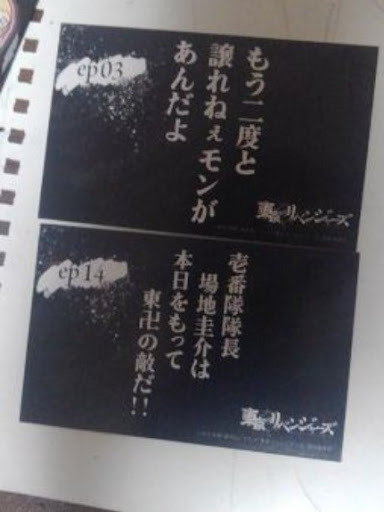 ep03
もう二度と
譲れねぇモンが
あんだよ
東京リベンジャーズ
ep14
壱番隊隊長
場地圭介は
本日をもって
東卍の敵だ!!
東京リベンジャーズ